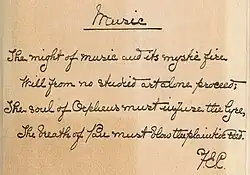 Music
The might of music and its mystic fire
Will from no studied art alone proceed;
The soul of Orpheus must infuse the lyre,
The breath of Pan must blow the plaintive reed.